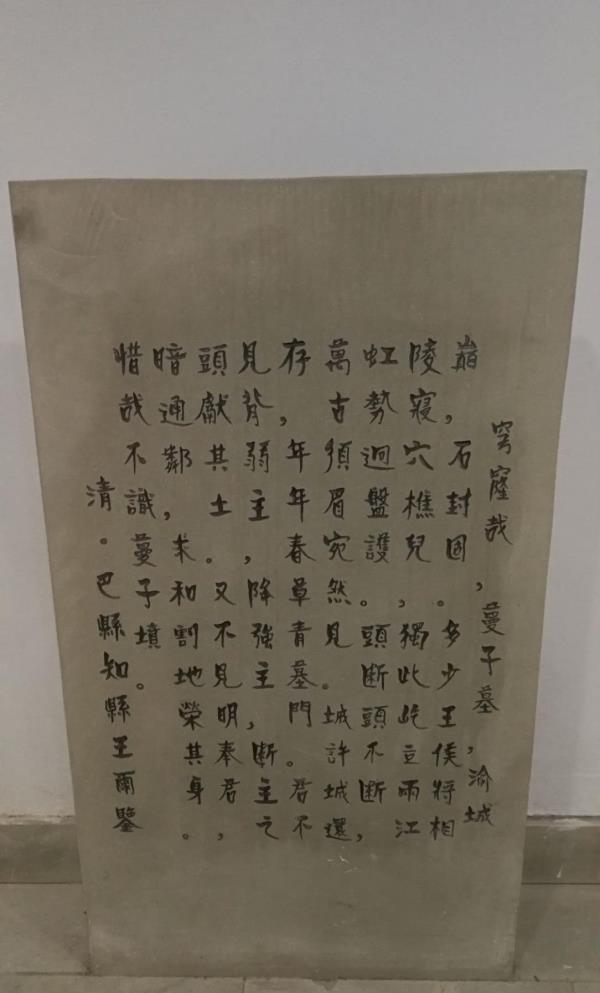 穹窿哉,蔓子墓,渝城
巔,石封固。多少王侯將相
陵寢穴樵兒,獨此屹立兩江
虹勢迴盤護。頭斷頭不斷,
萬古須眉宛然見。城許城還
存,年年春草青墓門。君不
見背弱主,降強主,斷主之
頭獻其土。又不見明奉君,
暗通鄰,求和割地榮其身。
惜哉不識蔓子墳。
清。巴縣知縣王爾鑒